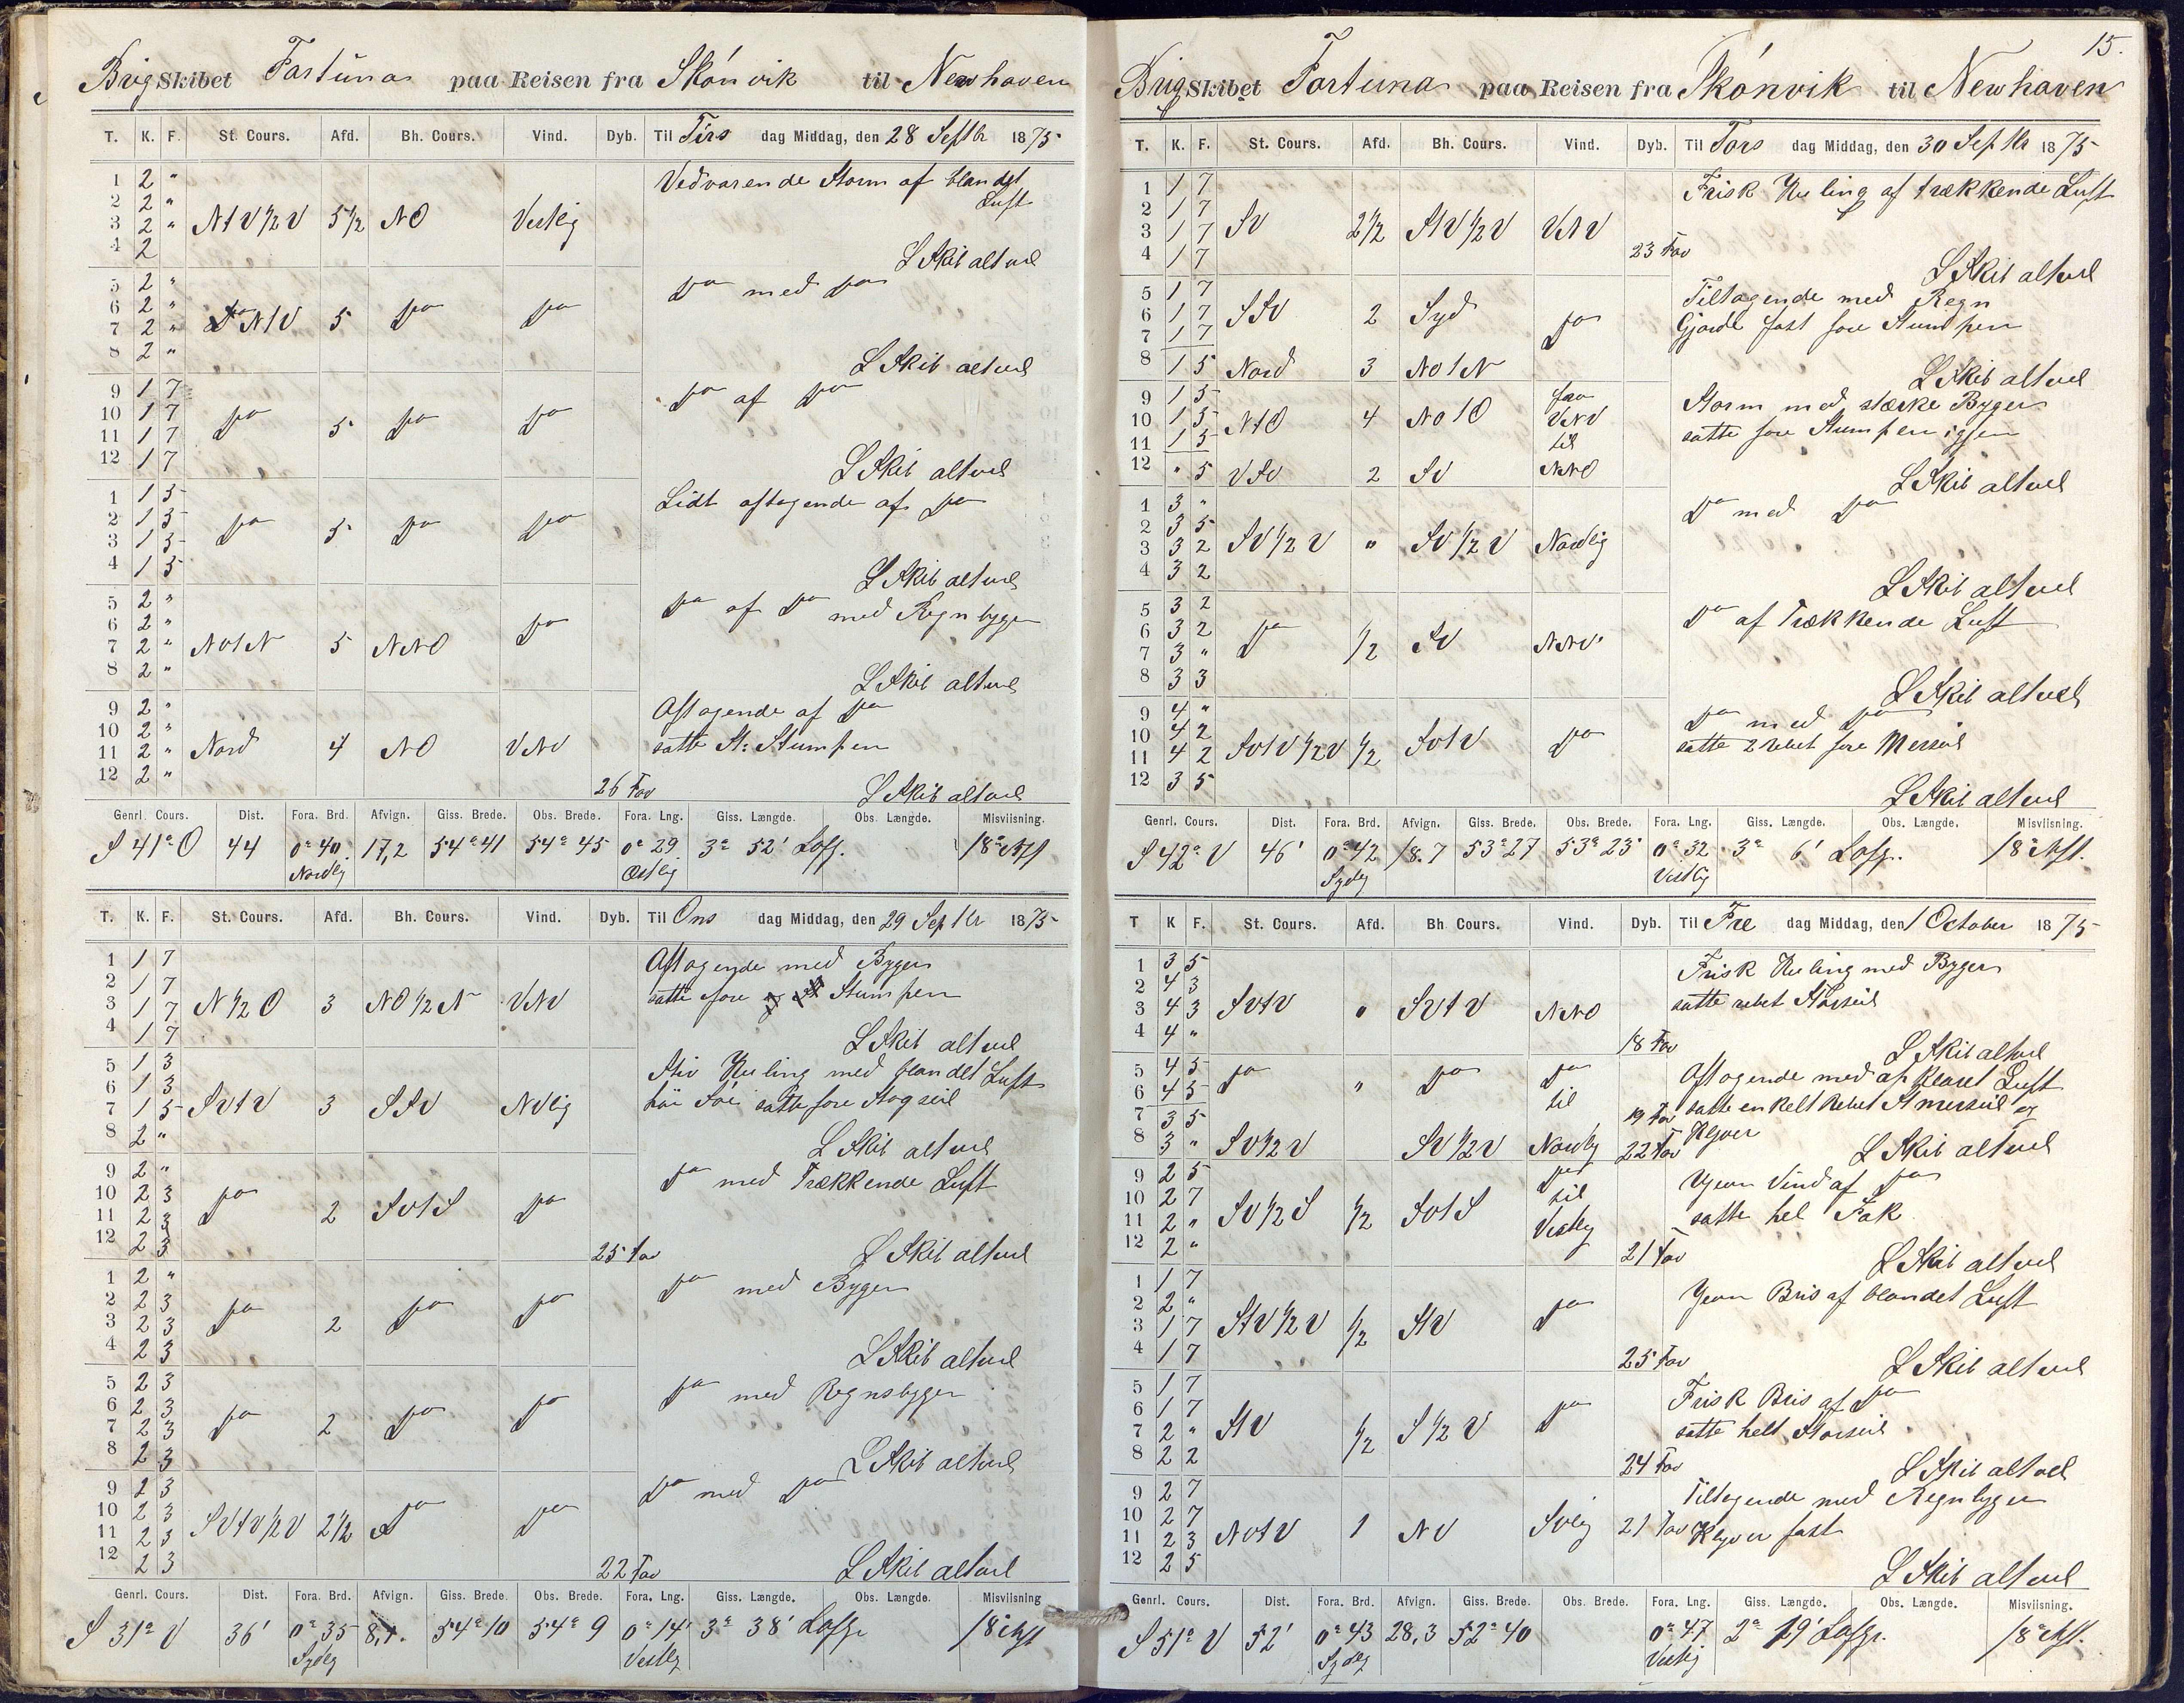 BrigSkibet Fortuna paa Reisen fra Skónvik til Newhaven
T. K. F. St. Cours. Afd. Bh. Cours. Vind. Dyb. Til Tirs dag Middag, den 28 Septbr 1875
1 2 " Vedvarende Storm af blandet
2 2 " Luft
3 2 " NtV½V 5½ NO Vestlig
4 2 L Skib altvel
5 2 " Do med Do
6 2 "
7 2 " NtV 5 Do Do
8 2 " L Skib altvel
9 1 7 Do af Do
10 1 7 Do 5 Do Do
11 1 7
12 1 7 L Skib altvel
1 1 5 Lidt aftagende af Do
2 1 5 Do 5 Do Do
3 1 5
4 1 5 L Skib altvel
5 2 " Do af Do
6 2 " med Regnbyger
7 2 " NOtN 5 NNO Do
8 2 " L Skib altvel
9 2 " Aftagende af Do
10 2 "
11 2 " Nord 4 NO VNV satte St: Stumpen
12 2 " 26 Fav L Skib altvel
Genrl. Cours. Dist. Fora. Brd. Afvign. Giss. Brede. Obs. Brede. Fora. Lng. Giss. Længde. Obs. Længde. Misviisning.
S 41° O 44 0° 40 17,2 54° 41 54° 45 0° 29 3° 52' 18°
Nordlig Østlig
T. K. F. St. Cours. Afd. Bh. Cours. Vind. Dyb. Til Ons dag Middag, den 29 Septbr 1875
1 1 7 Aftagende med Byger
2 1 7 satte fore Stumpen
3 1 7 N½O 3 NO½N VNV
4 1 7 L Skib altvel
5 1 3 Stiv Kuling med blandet Luft
6 1 3
7 1 5 SVtV 3 SSV NVlig satte fore Stagseil
8 2 " L Skib altvel
9 2 " Do med Trækkende Luft
10 2 3
11 2 3 Do 2 SVtS Do
12 2 3 25 Fav L Skib altvel
1 2 " Do med Byger
2 2 3
3 2 3 Do 2 Do Do
4 2 3 L Skib altvel
5 2 3 Do med Regnsbyger
6 2 3
7 2 3 Do 2 Do Do
8 2 3 L Skib altvel
9 2 3 Do med Do
10 2 3
11 2 3 SVtV½V 2½ Do Do
12 2 3 22 Fav L Skib altvel
Genrl. Cours. Dist. Fora. Brd. Afvign. Giss. Brede. Obs. Brede. Fora. Lng. Giss. Længde. Obs. Længde. Misviisning
S 31° V 36' 0° 35 54° 10 54° 9 0° 14' 3° 38' 18°
Sydlig Vestlig
15.
BrigSkibet Fortuna paa Reisen fra Skónvik til Newhaven
T. K. F. St. Cours. Afd. Bh. Cours. Vind. Dyb. Til Tors dag Middag, den 30 Septbr 1875
1 1 7 Frisk Kuling af trækkende Luft
2 1 7
3 1 7 SV 2½ StV½V VNV
4 1 7 23 Fav L Skib altvel
5 1 7 Tiltagende med Regn
6 1 7 SSV 2 Syd Do Gjorde fast fore Stumpen
7 1 7
8 1 5 Nord 3 NOtN L Skib altvel
9 1 5 fra Storm med stærke Byger
10 1 5 NtO 4 NOtO VNV satte fore Stumpen igjen
11 1 5 til
12 " 5 VSV 2 SV NNO L Skib altvel
1 3 " Do med Do
2 3 5
3 3 2 SV½V " SV½V Nordlig
4 3 2 L Skib altvel
5 3 2 Do af Trækkende Luft
6 3 2
7 3 " Do ½ SV NNV
8 3 3 L Skib altvel
9 4 " Do med Do
10 4 2 satte 2 rebet fore Merseil
11 4 2 SVtV½V ½ SVtV Do
12 3 5 L Skib altvel
Genrl. Cours. Dist. Fora. Brd. Afvign. Giss. Brede. Obs. Brede. Fora. Lng. Giss. Længde. Obs. Længde. Misviisning.
S 42° V 46' 0° 42 18.7 53° 27 53° 23 0° 32 3° 6' 18°
Sydlig Vestlig
T K F. St. Cours. Afd. Bh Cours. Vind. Dyb. Til Fre dag Middag, den 1 October 1875
1 3 5 Frisk Kuling med Byger
2 4 3 satte rebet Storseil
3 4 3 SVtV " SVtV NNO
4 4 " 18 Fav L Skib altvel
5 4 5 Do " Do Do Aftagende med afklaret Luft
6 4 5 til
7 3 5 19 Fav satte enkelt Rebet St merseil og
8 3 " SV½V SV½V Nordlig 22 Fav Klyver L Skib altvel
9 2 5 Do Jevn Vind af Do
10 2 7 til
11 2 " SV½S ½ SVtS Vestlig satte hel Fok
12 2 " 21 Fav L Skib altvel
1 1 7 Jevn Bris af blandet Luft
2 2 "
3 1 7 StV½V ½ StV Do
4 1 7 25 Fav L Skib altvel
5 1 7 Frisk Bris af Do
6 1 7
7 2 " StV ½ S½V Do satte helt Storseil
8 2 2 24 Fav L Skib altvel
9 2 7 Tiltagende med Regnbyger
10 2 7
11 2 3 NVtV 1 NV SVlig 21 Fav Klyver fast
12 2 5 L Skib altvel
Genrl. Cours. Dist. Fora. Brd. Afvign. Giss. Brede. Obs. Brede. Fora. Lng. Giss. Længde. Obs. Længde. Misviisning.
S 51° V 52' 0° 43 28,3 52° 40 0° 47 2° 19' 18°
Sydlig Vestlig